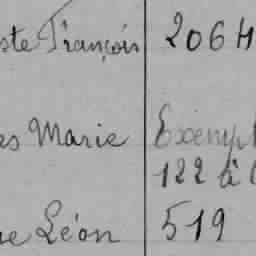 ste François 2064
es Marie Exempt
122 à
e Léon 519